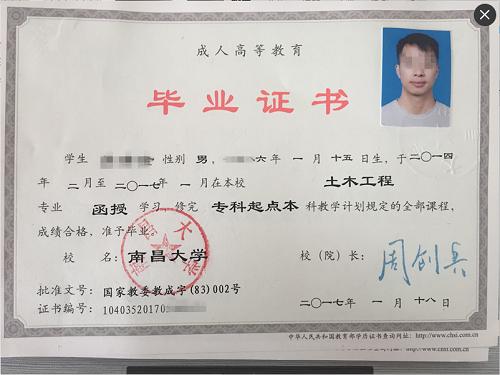 成人高等教育
毕业证书
学生 性别 男, 六年 一月十五日生,于二〇一四
年 二月至二〇一七年 一月在本校 土木工程
专业 函授 学习 修完 专科起点本 科教学计划规定的全部课程,
成绩合格,准予毕业。
校 名: 南昌大学 校(院)长: 周创兵
批准文号: 国家教委教成字(83)002号
二〇一七年 一月十八日
证书编号: 10403520170
中华人民共和国教育部学历证书查询网址: http://www.chsi.com.cn